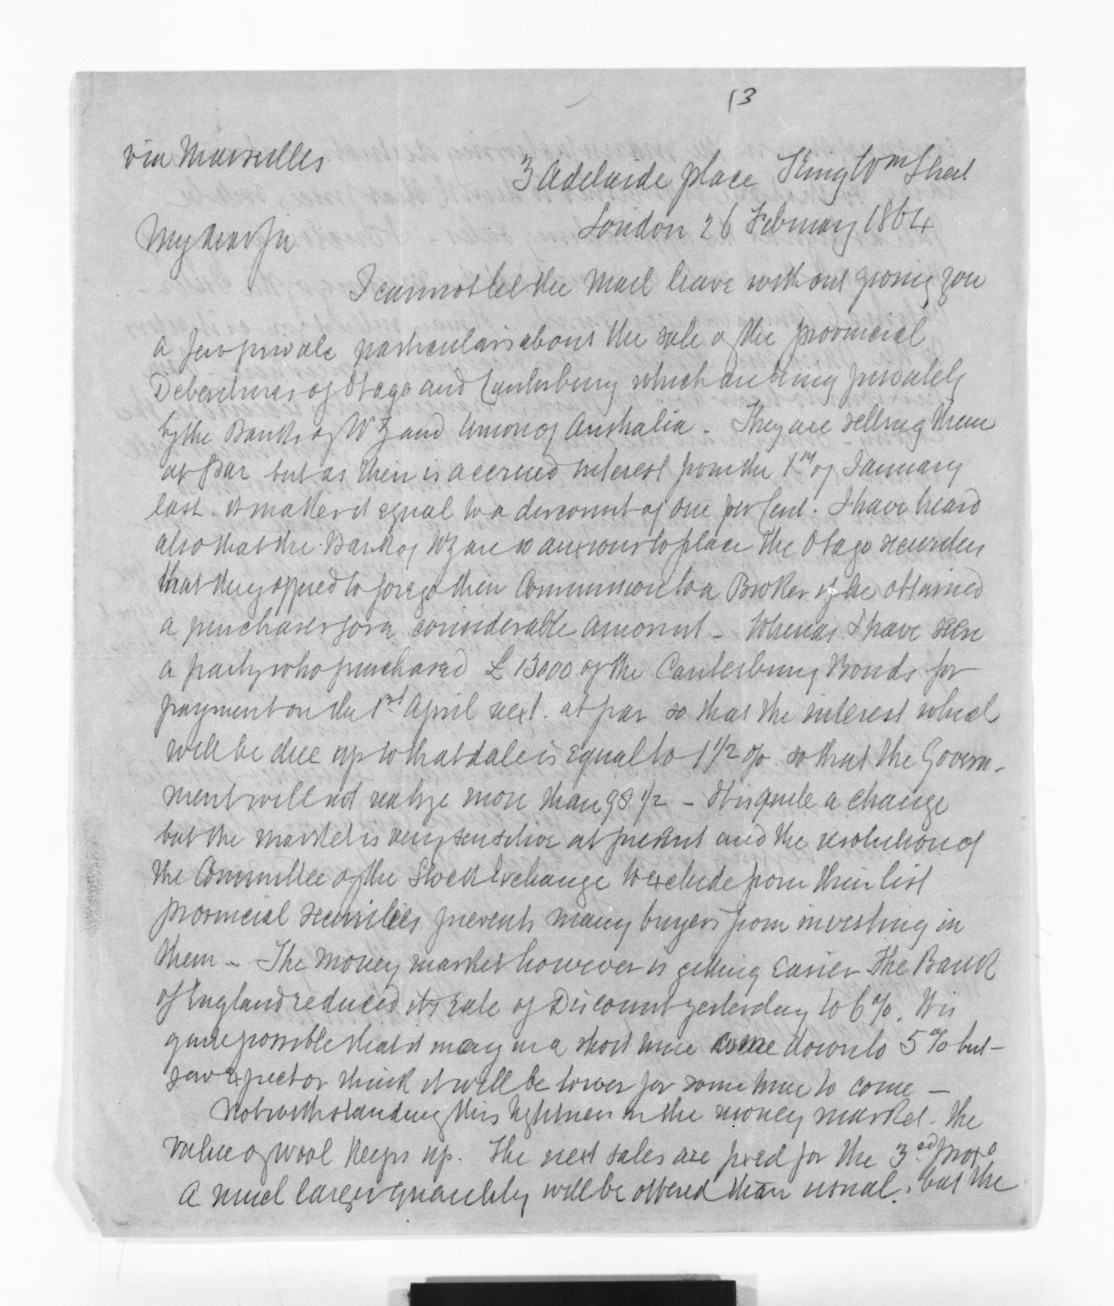 13
via Marseilles
3 Adelaide place King Wm Street
London 26 February 1864
My dear Sir
I cannot let the Mail leave without giving you
a few private particulars about the sale of the provincial
Debentures of Otago and Canterbury which are being privately
by the Banks of NZ and Union of Australia - They are selling them
at Par but as there is accrued interest from the 1st of January
last. it makes it equal to a discount of one per Cent. I have heard
also that the Bank of NZ are so anxious to place the Otago securities
that they offered to forego their Commission to a Broker if he obtained
a purchaser for a considerable amount - Whereas I have seen
a party who purchased £13000 of the Canterbury Bonds for
payment on the 1st April next. at par so that the interest which
will be due up to that date is Equal to 1 1/2 % so that the Govern-
ment will not realize more than 98 1/2 - It is quite a change
but the market is very sensitive at present and the resolution of
the Committee of the Stock Exchange to exclude from their list
provincial securities prevents many buyers from investing in
them - The Money market however is getting Easier The Bank
of England reduced its rate of Discount yesterday to 6%. It is
quite possible that it may in a short time come down to 5% but -
few expect or think it will be lower for some time to come -
Notwithstanding this tightness in the money market. the
value of wool keeps up. The next sales are fixed for the 3rd proxo
A much larger quantity will be offered than usual. but the